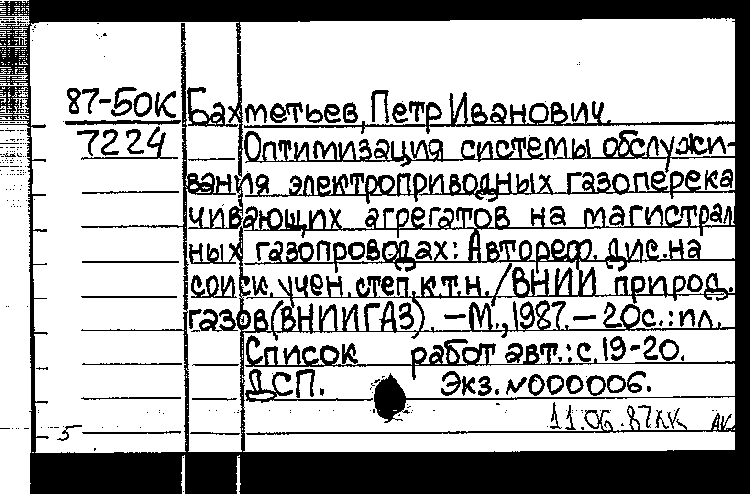 87-5ОК Бахметьев, Петр Иванович.
7224 Оптимизация системы обслужи-
вания электроприводных газоперека
чивающих агрегатов на магистрал
ных газопроводах: Автореф. дис. на
соиск. учен. степ. к.т.н. / ВНИИ природ.
газов (ВНИИГАЗ). — М., 1987. — 20с.: ил.
Список работ авт.: с. 19-20.
ДСП. Экз. №000006.
11.06.87ЛК АК
5